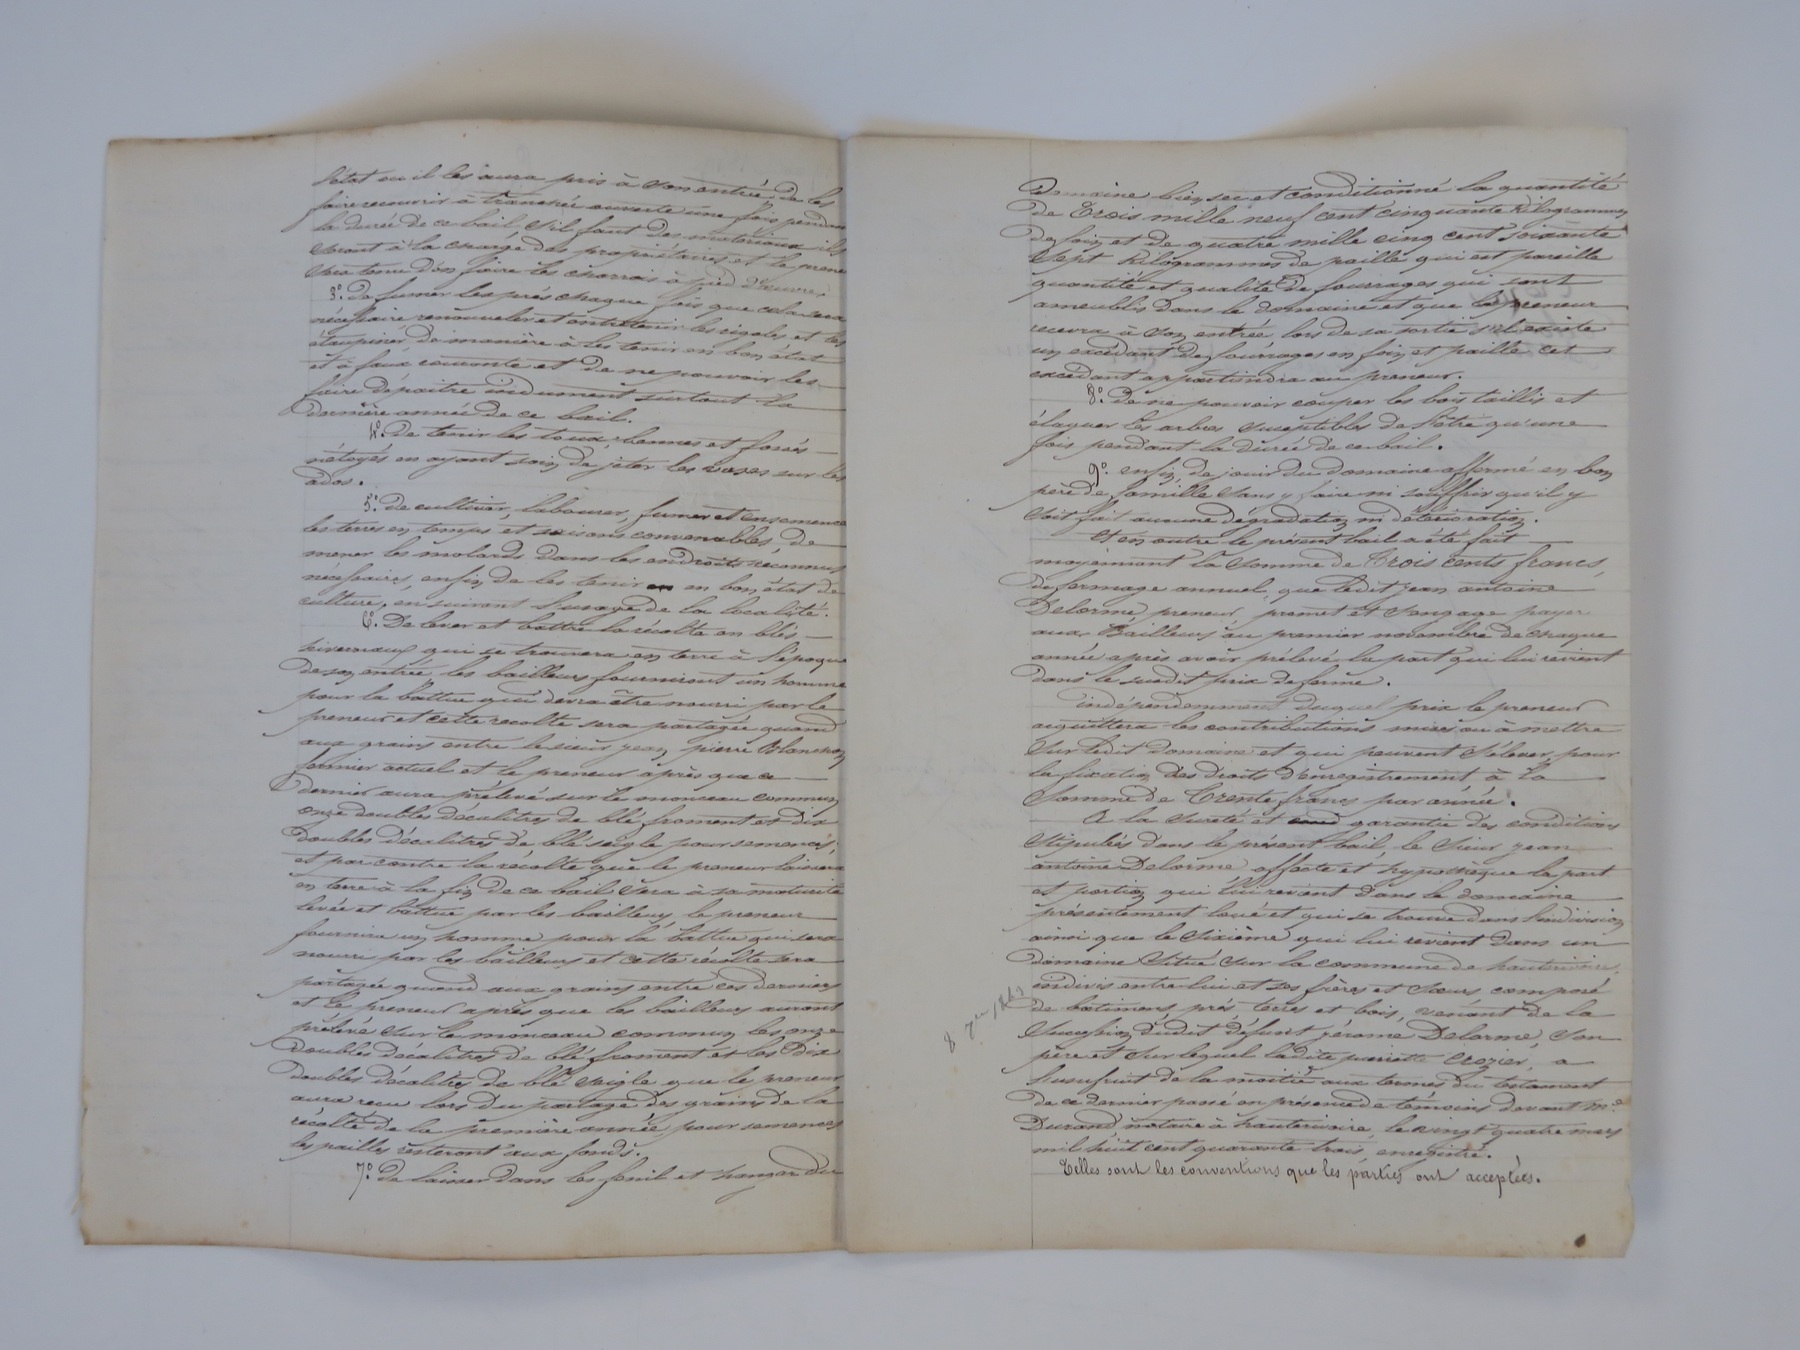 l'état ou il les aura pris à son entrée, de les
faire recouvrir à tranchée ouverte une fois pendant
la durée de ce bail s'il faut des matériaux ils
seront à la charge des propriétaires et le preneur
sera tenu d'en faire les charrois à pied d'œuvre;
3º. de fumer les prés chaque fois que cela sera
nécessaire renouveler et entretenir les rigoles et les
étaupiner de manière à les tenir en bon état
et à faux courante et de ne pouvoir les
faire dépaitre indument surtout la
dernière année de ce bail.
4º. de tenir les toux, bennes et fossés
nétoyés en ayant soin de jeter les vases sur les
ados.
5º. de cultiver, labourer, fumer et ensemencer
les terres en temps et saisons convenables, de
mener les molards dans les endroits reconnus
nécessaires, enfin de les tenir en bon état de
culture, en suivant l'usage de la localité.
6º. De lever et battre la récolte en blés
hivernaux qui se trouvera en terre à l'époque
de son entrée, les bailleurs fourniront un homme
pour la battue qui devra être nourri par le
preneur et cette récolte sera partagée quand
aux grains entre le sieur jean pierre Blanchon
fermier actuel et le preneur après que ce
dernier aura prélevé sur le monceau commun
onze doubles décalitres de blé froment et dix
doubles décalitres de blé seigle pour semences;
et par contre la récolte que le preneur laissera
en terre à la fin de ce bail sera à sa maturité
levée et battue par les bailleurs, le preneur
fournira un homme pour la battue qui sera
nourri par les bailleurs et cette récolte sera
partagée quand aux grains entre ces derniers
et le preneur après que les bailleurs auront
prélevé sur le monceau commun les onze
doubles décalitres de blé froment et les dix
doubles décalitres de blé seigle que le preneur
aura reçu lors du partage des grains de la
récolte de la première année, pour semences
les pailles resteront aux fonds.
7º. de laisser dans les fenil et hangar du
domaine bien sec et conditionné la quantité
de Trois mille neuf cent cinquante kilogrammes
de foin et de quatre mille cinq cent soixante
sept kilogrammes de paille qui est pareille
quantité et qualité de fourrages qui sont
ameublis dans le domaine et que le preneur
recevra à son entrée, lors de sa sortie s'il existe
un excédant de fourrages en foin et paille cet
excédant appartiendra au preneur.
8º. de ne pouvoir couper les bois taillis et
élaguer les arbres susceptibles de l'être qu'une
fois pendant la durée de ce bail.
9º. enfin, de jouir du domaine affermé en bon
père de famille sans y faire ni souffrir qu'il y
soit fait aucune dégradation ni détérioration.
Et en outre le présent bail a été fait
moyennant la somme de Trois cents francs,
de fermage annuel, que ledit jean antoine
Delorme preneur, promet et s'engage payer
aux Bailleurs au premier novembre de chaque
année après avoir prélevé la part qui lui revient
dans le susdit prix de ferme.
indépendamment duquel prix le preneur
acquittera les contributions mises ou à mettre
sur ledit domaine et qui peuvent s'élever pour
la fixation des droits d'enregistrement à la
somme de Trente francs par année.
A la sureté et garantie des conditions
stipulées dans le présent bail, le sieur jean
antoine Delorme, affecte et hypothèque la part
et portion qui lui revient dans le domaine
présentement loué et qui se trouve dans l'indivision
ainsi que le sixième qui lui revient dans un
domaine situé sur la commune de hauterivoire,
indivis entre lui et ses frères et sœurs composé
de bâtiments, prés, terres et bois, venant de la
succession dudit défunt jérome Delorme, son
père et sur lequel ladite pierrette Crozier, a
l'usufruit de la moitié aux termes du testament
de ce dernier passé en présence de témoins devant Mᵉ
Durand notaire à hauterivoire, le vingt quatre mars
mil huit cent quarante trois, enregistré.
Telles sont les conventions que les parties ont acceptées.